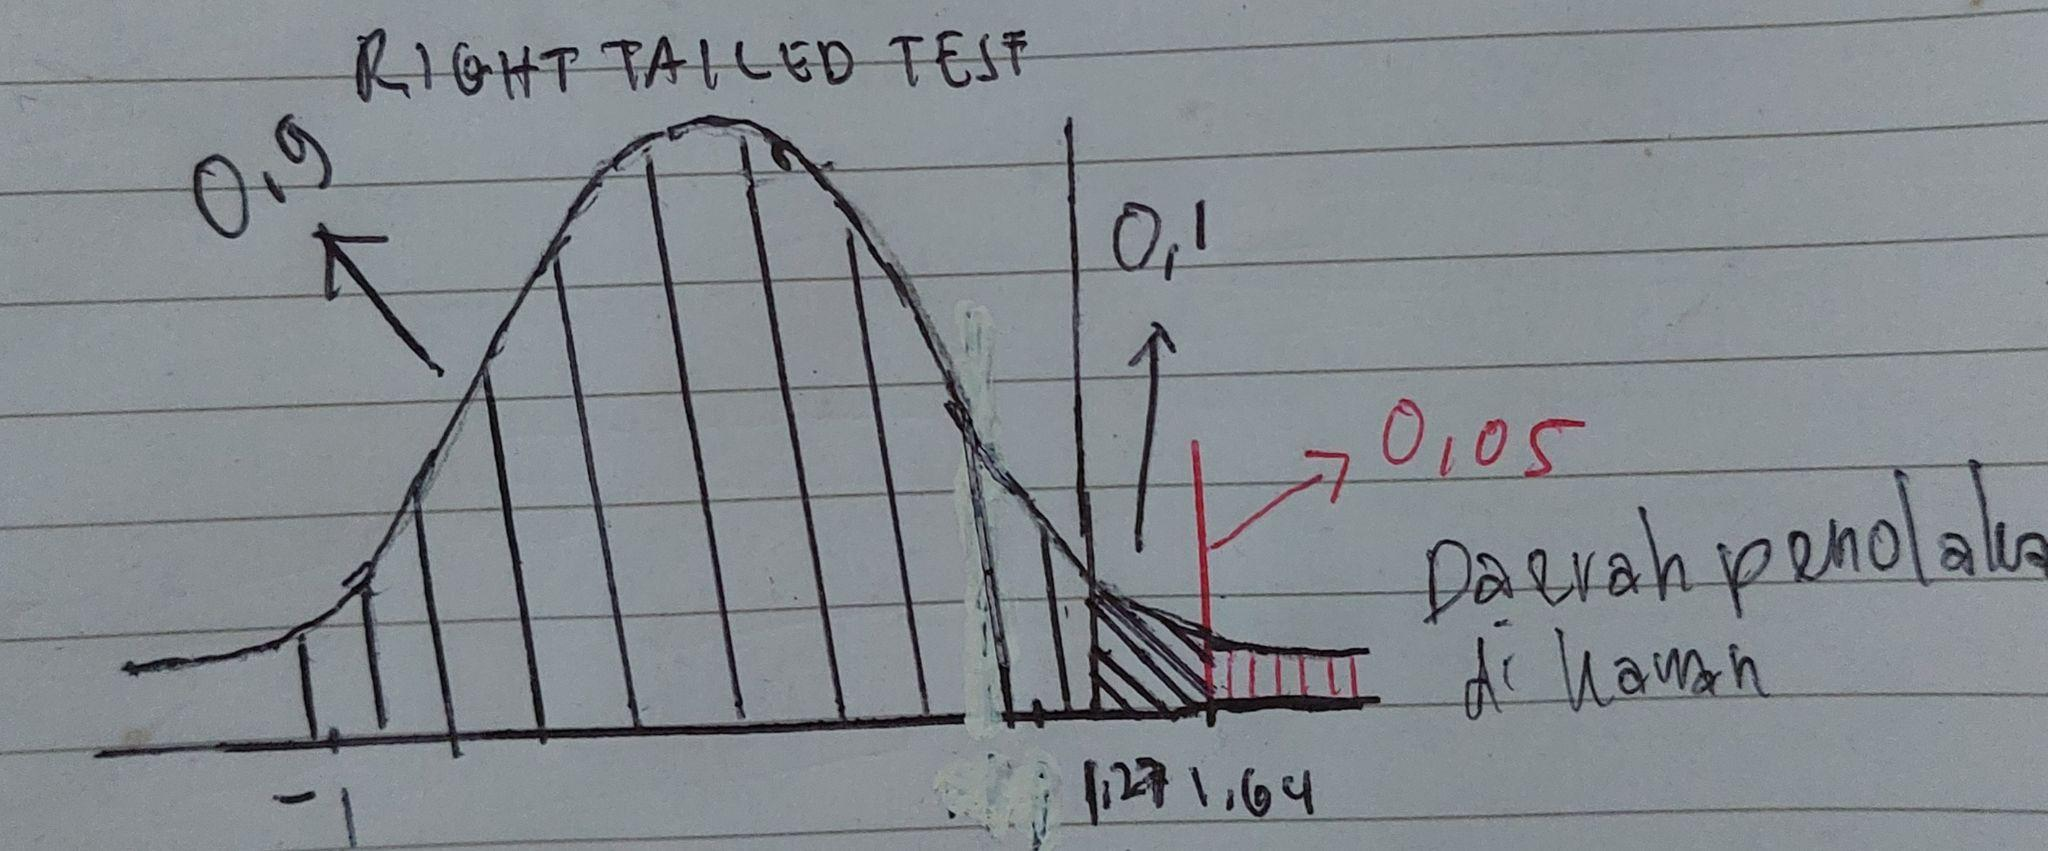 RIGHT TAILED TEST
0,9
0,1
0,05
Daerah penolaka
di kanan
-1
1.27 1.64